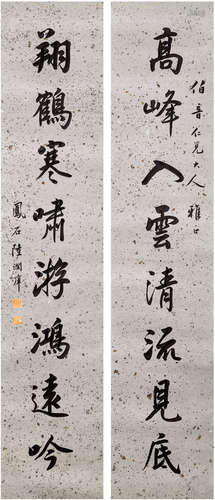 高峰入雲清流見底
伯音仁兄大人雅口
翔鶴寒嘯游鴻遠吟
鳳石陸潤庠